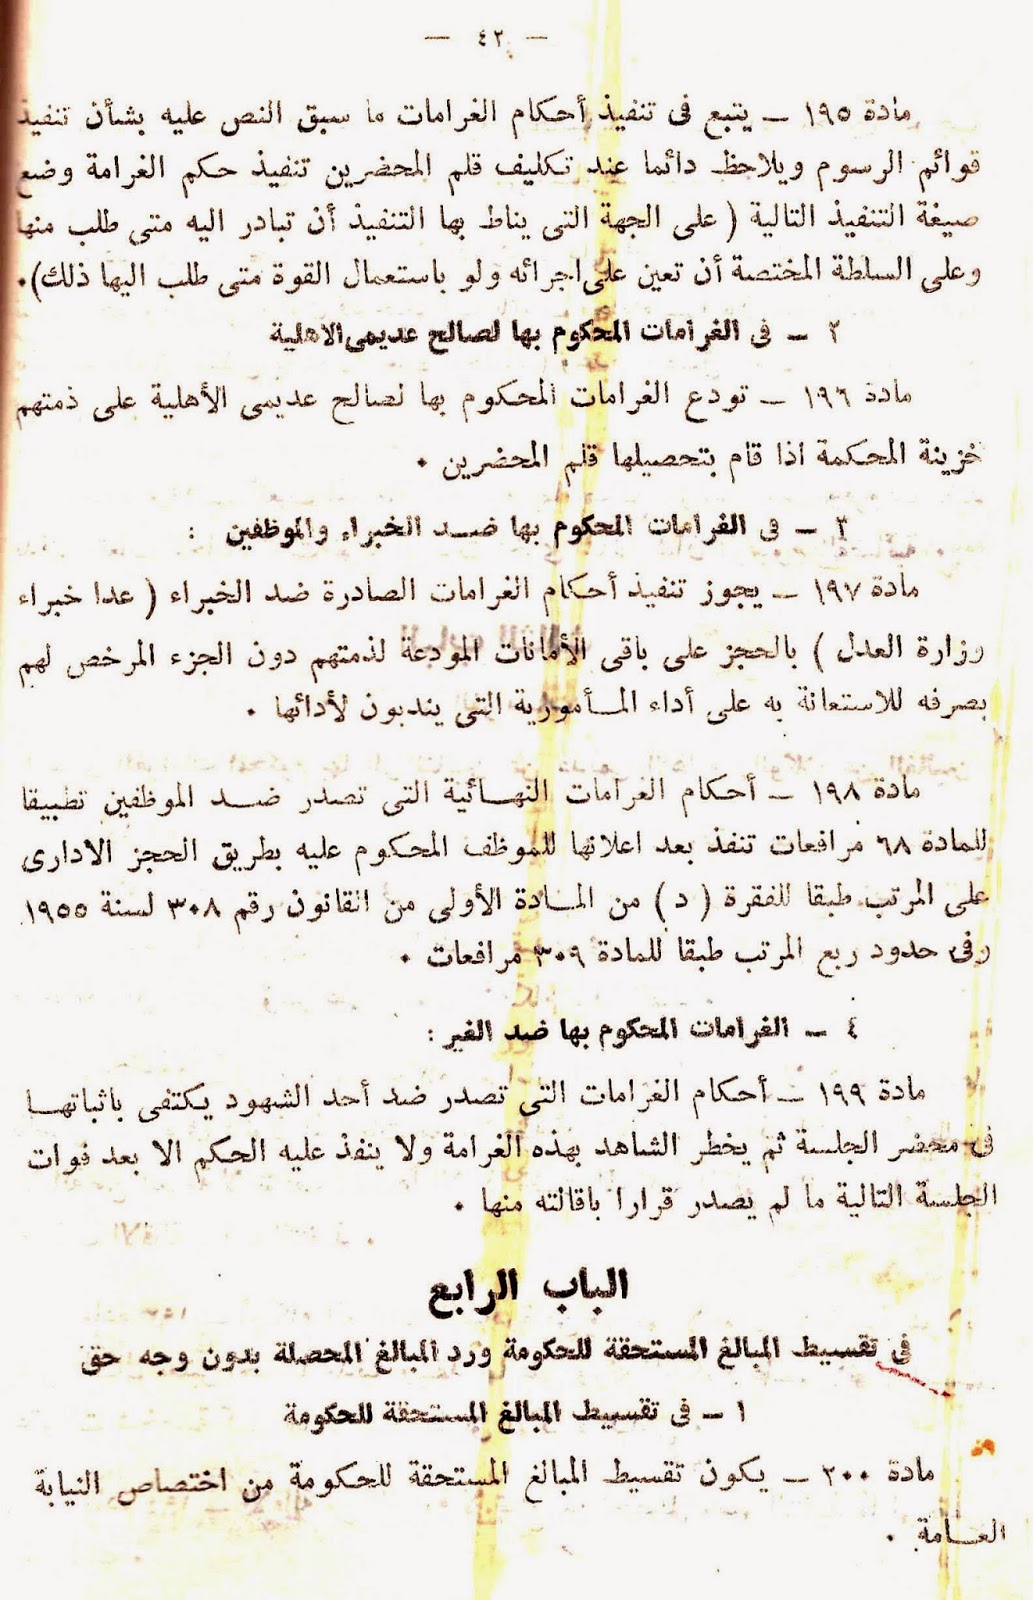 — ٤٢ —
مادة ١٩٥ – يتبع فى تنفيذ أحكام الغرامات ما سبق النص عليه بشأن تنفيذ
قوائم الرسوم ويلاحظ دائما عند تكليف قلم المحضرين تنفيذ حكم الغرامة وضع
صيغة التنفيذ التالية ( على الجهة التى يناط بها التنفيذ أن تبادر اليه متى طلب منها
وعلى السلطة المختصة أن تعين على اجرائه ولو باستعمال القوة متى طلب اليها ذلك).
٢ – فى الغرامات المحكوم بها لصالح عديمى الاهلية
مادة ١٩٦ – تودع الغرامات المحكوم بها لصالح عديمى الأهلية على ذمتهم
خزينة المحكمة اذا قام بتحصيلها قلم المحضرين .
٣ – فى الغرامات المحكوم بها ضد الخبراء والموظفين :
مادة ١٩٧ – يجوز تنفيذ أحكام الغرامات الصادرة ضد الخبراء ( عدا خبراء
وزارة العدل ) بالحجز على باقى الأمانات المودعة لذمتهم دون الجزء المرخص لهم
بصرفه للاستعانة به على أداء المأمورية التى يندبون لأدائها .
مادة ١٩٨ – أحكام الغرامات النهائية التى تصدر ضد الموظفين تطبيقا
للمادة ٦٨ مرافعات تنفذ بعد اعلانها للموظف المحكوم عليه بطريق الحجز الادارى
على المرتب طبقا للفقرة ( د ) من المادة الأولى من القانون رقم ٣٠٨ لسنة ١٩٥٥
وفى حدود ربع المرتب طبقا للمادة ٣٠٩ مرافعات .
٤ – الغرامات المحكوم بها ضد الغير :
مادة ١٩٩ – أحكام الغرامات التى تصدر ضد أحد الشهود يكتفى باثباتها
فى محضر الجلسة ثم يخطر الشاهد بهذه الغرامة ولا ينفذ عليه الحكم الا بعد فوات
الجلسة التالية ما لم يصدر قرارا باقالته منها .
الباب الرابع
فى تقسيط المبالغ المستحقة للحكومة ورد المبالغ المحصلة بدون وجه حق
١ – فى تقسيط المبالغ المستحقة للحكومة
مادة ٢٠٠ – يكون تقسيط المبالغ المستحقة للحكومة من اختصاص النيابة
العامة .